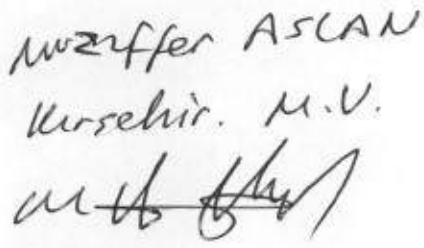 Muzaffer ASLAN
Kırşehir. M.V.